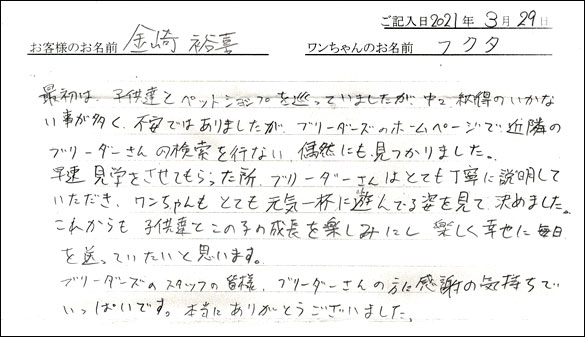 ご記入日2021年 3月 29日
お客様のお名前 金崎 裕喜 ワンちゃんのお名前 フクタ
最初は、子供達とペットショップを巡っていましたが、中々納得のいかな
い事が多く、不安ではありましたが、ブリーダーズのホームページで近隣の
ブリーダーさんの検索を行ない、偶然にも見つかりました。
早速見学をさせてもらった所、ブリーダーさんはとても丁寧に説明して
いただき、ワンちゃんもとても元気一杯に遊んでる姿を見て、決めました。
これからも子供達とこの子の成長を楽しみにし楽しく幸せに毎日
を送っていたいと思います。
ブリーダーズのスタッフの皆様、ブリーダーさんの方に感謝の気持ちで
いっぱいです。本当にありがとうございました。